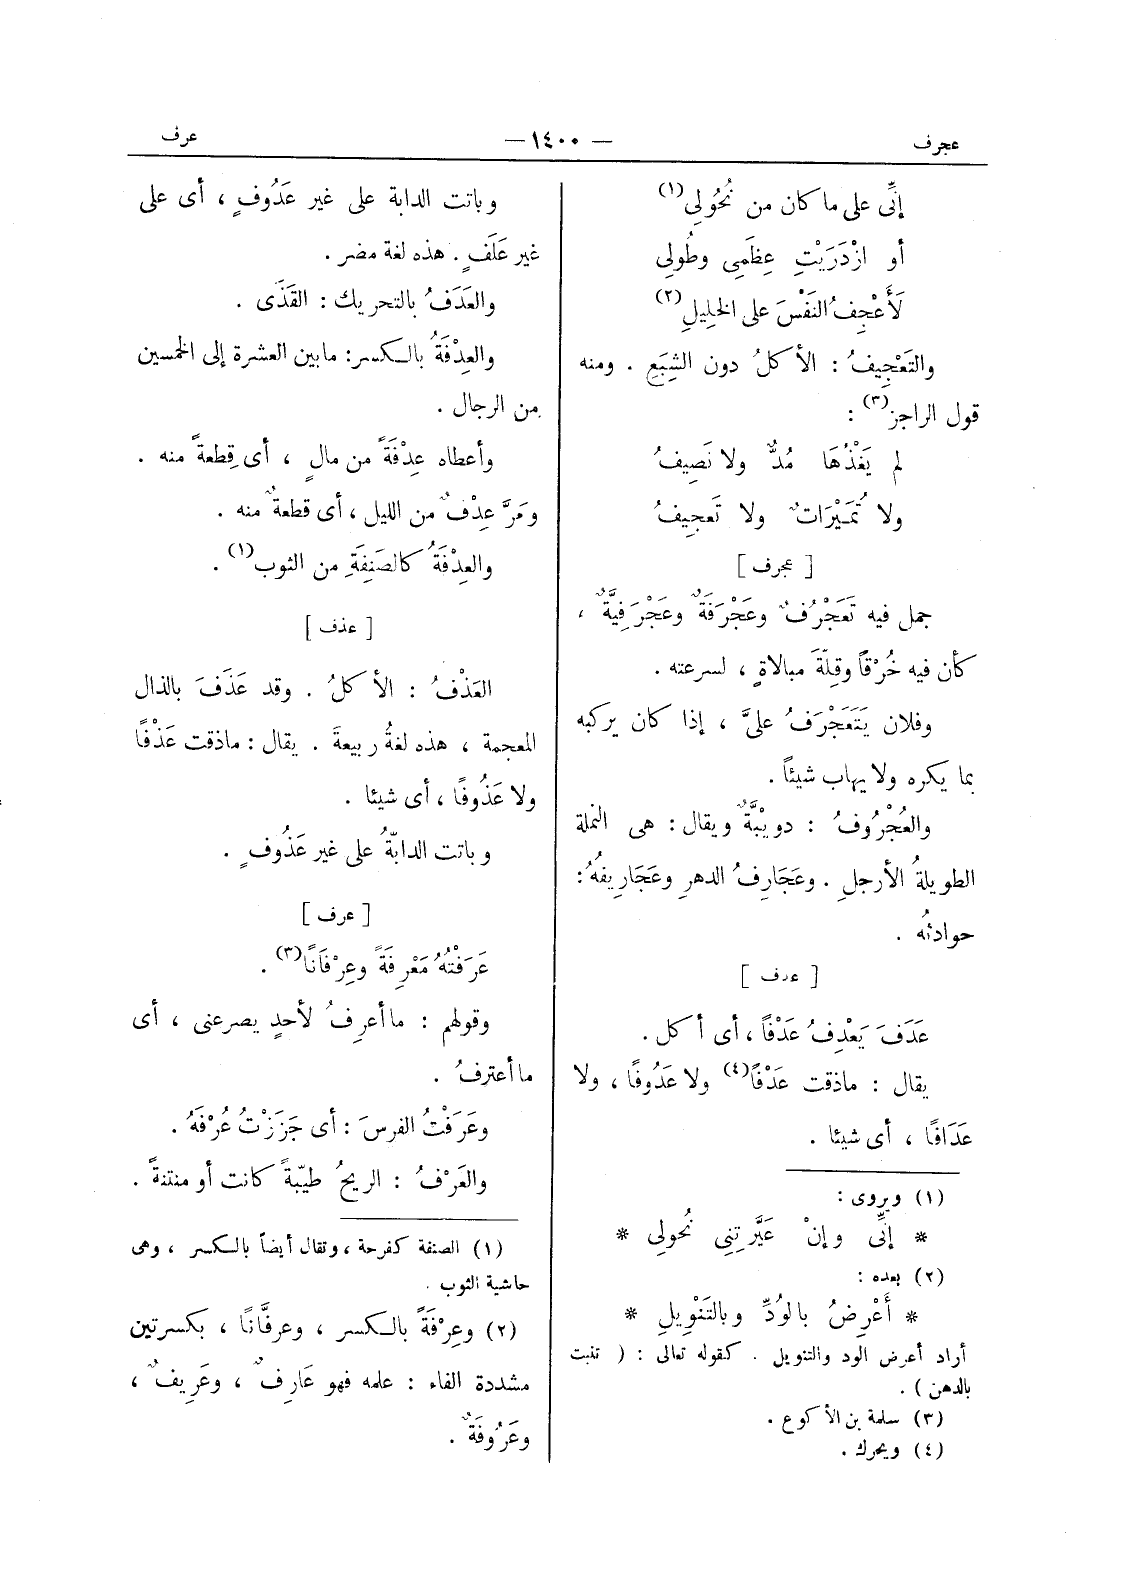 عجرف
— ١٤٠٠ —
عرف
إنِّى على ما كان من نُحُولِى(١)
أو ازْدَرَيْتِ عِظَمِى وطُولِى
لَأَعْجِفُ النَفْسَ على الخَلِيلِ(٢)
والتَعْجِيفُ : الأكلُ دون الشِبَعِ . ومنه
قول الراجز(٣) :
لم يَغْذُهَا مُدٌّ ولا نَصِيفُ
ولا تُمَيْرَاتٌ ولا تَعجِيفُ
[ عجرف ]
جمل فيه تَعَجْرُفٌ وعَجْرَفَةٌ وعَجْرَفِيَّةٌ ،
كأن فيه خُرْقاً وقِلَّةَ مبالاةٍ ، لسرعته .
وفلان يَتَعَجْرَفُ علىَّ ، إذا كان يركبه
بما يكره ولا يهاب شيئاً .
والعُجْرُوفُ : دويْبَّةٌ ويقال : هى النملة
الطويلةُ الأرجلِ . وعَجَارِفُ الدهرِ وعَجَارِيفُهُ :
حوادثُه .
[ عدف ]
عَدَفَ يَعْدِفُ عَدْفاً ، أى أكل .
يقال : ماذقت عَدْفاً(٤) ولا عَدُوفًا ، ولا
عَدَافًا ، أى شيئا .
(١) ويروى :
* إنِّى وإنْ عَيَّرتِنِى نُحولِى *
(٢) بعده :
* أَعْرِضُ بالوُدِّ وبالتَنْوِيلِ *
أراد أعرض الود والتنويل . كقوله تعالى : ( تنبت
بالدهن ) .
(٣) سلمة بن الأكوع .
(٤) ويحرك .
وباتت الدابة على غير عَدُوفٍ ، أى على
غير عَلَفٍ . هذه لغة مضر .
والعَدَفُ بالتحريك : القَذَى .
والعِدْفَةُ بالكسر : مابين العشرة إلى الخمسين
من الرجال .
وأعطاه عِدْفَةً من مالٍ ، أى قِطعةً منه .
ومَرَّ عِدْفٌ من الليل ، أى قطعةٌ منه .
والعِدْفَةُ كالصَنِفَةِ من الثوب(١) .
[ عذف ]
العَذْفُ : الأكلُ . وقد عَذَفَ بالذال
المعجمة ، هذه لغةُ ربيعةَ . يقال : ماذقت عَذْفًا
ولا عَذُوفًا ، أى شيئا .
وباتت الدابّةُ على غير عَذُوفٍ .
[ عرف ]
عَرَفْتُهُ مَعْرِفَةً وعِرْفَانًا(٢) .
وقولهم : ما أعرِفُ لأحدٍ يصرعنى ، أى
ما أعترفُ .
وعَرَفْتُ الفرسَ : أى جَزَزْتُ عُرْفَهُ .
والعَرْفُ : الريحُ طيّبةً كانت أو منتنةً .
(١) الصنفة كفرحة ، وتقال أيضاً بالكسر ، وهى
حاشية الثوب .
(٢) وعِرْفَةً بالكسر ، وعرفَّانًا ، بكسرتين
مشددة الفاء : علمه فهو عَارِفٌ ، وعَرِيفٌ ،
وعَرُوفَةٌ .